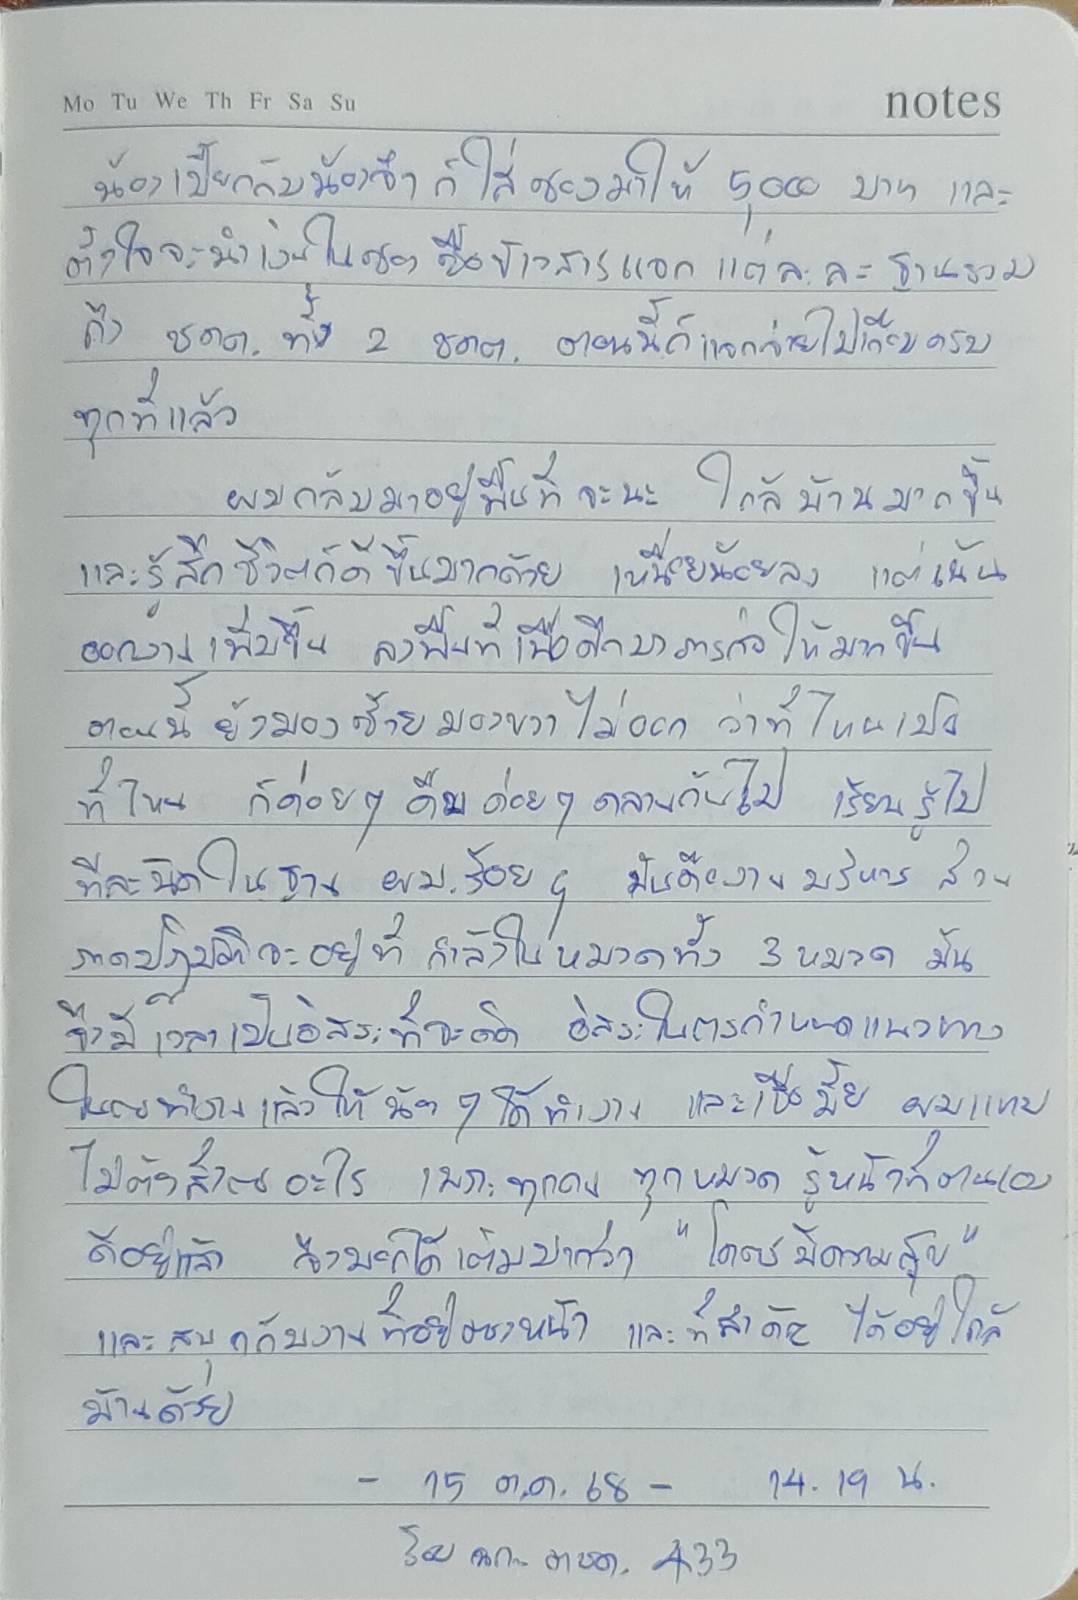 Mo Tu We Th Fr Sa Su
notes
น้องเปี๊ยกกับน้องจ๋า ก็ใส่ซองมาให้ 5,000 บาท และ
ตั้งใจจะนำเงินในซอง ซื้อข้าวสารแจก แต่ละ ฐานรวม
ถึง ชคต. ทั้ง 2 ชคต. ตอนนี้ก็แจกจ่ายไปเกือบครบ
ทุกที่แล้ว
ผมกลับมาอยู่พื้นที่จะนะ ใกล้บ้านมากขึ้น
และรู้สึกชีวิตก็ดีขึ้นมากด้วย เหนื่อยน้อยลง แต่เน้น
ออกงานเพิ่มขึ้น ลงพื้นที่เพื่อศึกษาภารกิจให้มากขึ้น
ตอนนี้ ยังมองซ้ายมองขวาไม่ออก ว่าที่ไหนเป็น
ที่ไหน ก็ค่อยๆ คืบค่อยๆ คลานกันไป เรียนรู้ไป
ทีละนิด ในฐาน ผบ.ร้อยฯ มันคืองานบริหาร ส่วน
ภาคปฏิบัติจะอยู่ที่ กำลังในหมวดทั้ง 3 หมวด มัน
จึงมีเวลาเป็นอิสระที่จะคิด อิสระในการกำหนดแนวทาง
ในการทำงาน แล้วให้น้องๆ ได้ทำงาน และเชื่อมั้ย ผมแทบ
ไม่ต้องสั่งการอะไร เพราะทุกคน ทุกหมวด รู้หน้าที่ตนเอง
ดีอยู่แล้ว จึงพูดได้เต็มปากว่า "โคตรมีความสุข"
และสนุกกับงานที่อยู่ตรงหน้า และที่สำคัญ ได้อยู่ใกล้
บ้านด้วย
- 15 ต.ค. 68 - 14.19 น.
ร้อย ตชด. 433